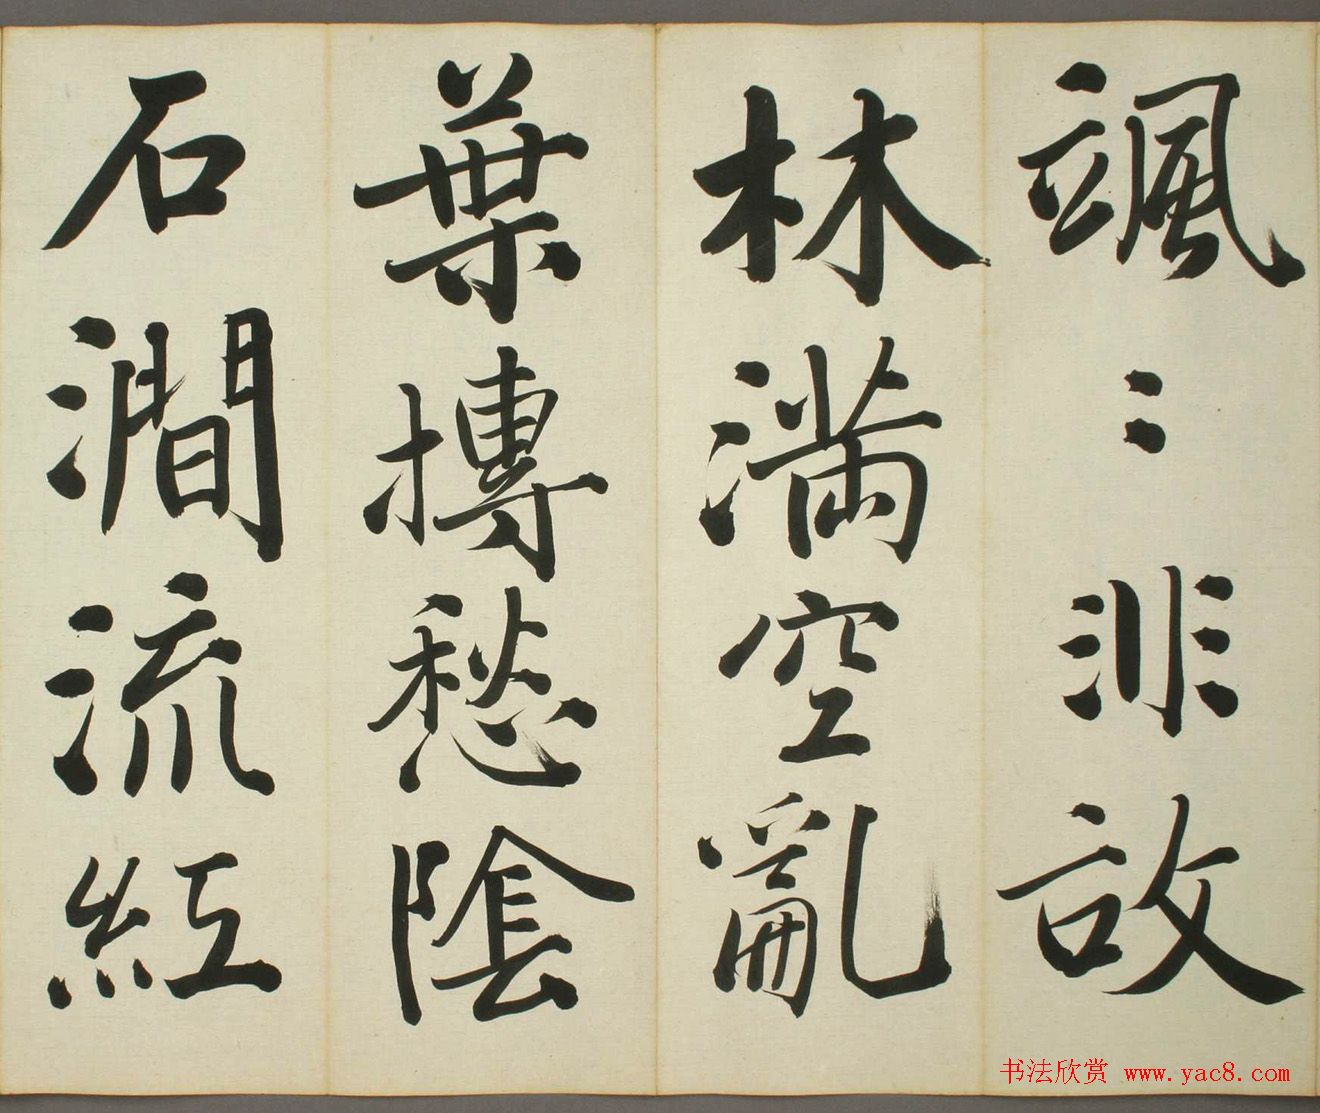 颯〻非故
林滿空亂
葉摶愁陰
石澗流紅
书法欣赏 www.yac8.com